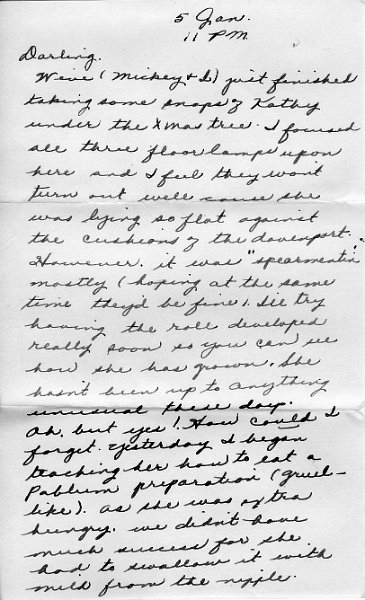 5 Jan.
11 PM
Darling,
We've (Mickey & I) just finished
taking some snaps of Kathy
under the Xmas tree. I focused
all three floor lamps upon
here and I feel they won't
turn out well cause she
was lying so flat against
the cushions of the davenport.
However, it was "spearmentin"
mostly (hoping at the same
time they'd be fine). I'll try
having the role developed
really soon so you can see
how she has grown. She
hasn't been up to anything
unusual these day.
Oh, but yes! How could I
forget. Yesterday I began
teaching her how to eat a
Pablum preparation (gruel-
like). As she was extra
hungry, we didn't have
much success for she
had to swallow it with
mild from the nipple.